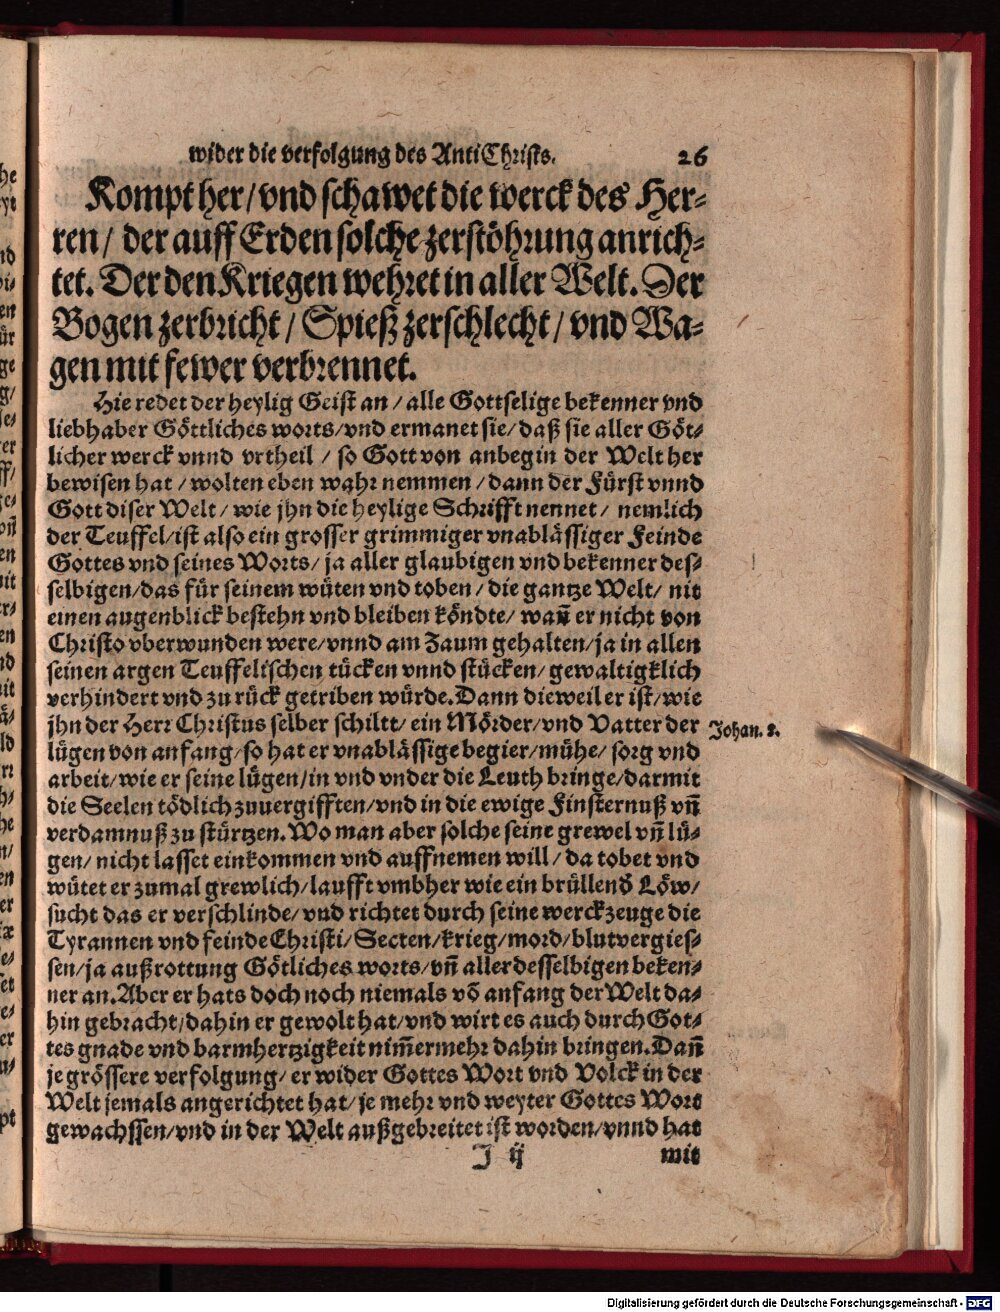 wider die verfolgung des AntiChrists. 26
Kompt her/ vnd schawet die werck des Her-
ren/ der auff Erden solche zerstöhrung anrich-
tet. Der den Kriegen wehret in aller Welt. Der
Bogen zerbricht/ Spieß zerschlecht/ vnd Wa-
gen mit fewer verbrennet.
Hie redet der heylig Geist an/ alle Gottselige bekenner vnd
liebhaber Göttliches worts/ vnd ermanet sie/ daß sie aller Göt-
licher werck vnnd vrtheil/ so Gott von anbegin der Welt her
bewisen hat/ wolten eben wahr nemmen/ dann der Fürst vnnd
Gott diser Welt/ wie jhn die heylige Schrifft nennet/ nemlich
der Teuffel/ ist also ein grosser grimmiger vnablässiger Feinde
Gottes vnd seines Worts/ ja aller glaubigen vnd bekenner des-
selbigen/ das für seinem wüten vnd toben/ die gantze Welt/ nit
einen augenblick bestehn vnd bleiben köndte/ wañ er nicht von
Christo vberwunden were/ vnnd am Zaum gehalten/ ja in allen
seinen argen Teuffelischen tücken vnnd stücken/ gewaltigklich
verhindert vnd zu rück getriben würde. Dann dieweil er ist/ wie
jhn der Herr Christus selber schiltt/ ein Mörder/ vnd Vatter der
Johan. 8.
lügen von anfang/ so hat er vnablässige begier/ mühe/ sorg vnd
arbeit/ wie er seine lügen/ in vnd vnder die Leuth bringe/ darmit
die Seelen tödlich zuuergifften/ vnd in die ewige Finsternuß vñ
verdamnuß zu stürtzen. Wo man aber solche seine grewel vñ lü-
gen/ nicht lasset einkommen vnd auffnemen will/ da tobet vnd
wütet er zumal grewlich/ laufft vmbher wie ein brüllend Löw/
sucht das er verschlinde/ vnd richtet durch seine werckzeuge die
Tyrannen vnd feinde Christi/ Secten/ krieg/ mord/ blutvergies-
sen/ ja außrottung Götliches worts/ vñ aller desselbigen beken-
ner an. Aber er hats doch noch niemals võ anfang der Welt da-
hin gebracht/ dahin er gewolt hat/ vnd wirt es auch durch Got-
tes gnade vnd barmhertzigkeit nim̃ermehr dahin bringen. Dañ
je grössere verfolgung/ er wider Gottes Wort vnd Volck in der
Welt jemals angerichtet hat/ je mehr vnd weyter Gottes Wort
gewachssen/ vnd in der Welt außgebreitet ist worden/ vnnd hat
J ij mit
Digitalisierung gefördert durch die Deutsche Forschungsgemeinschaft - DFG